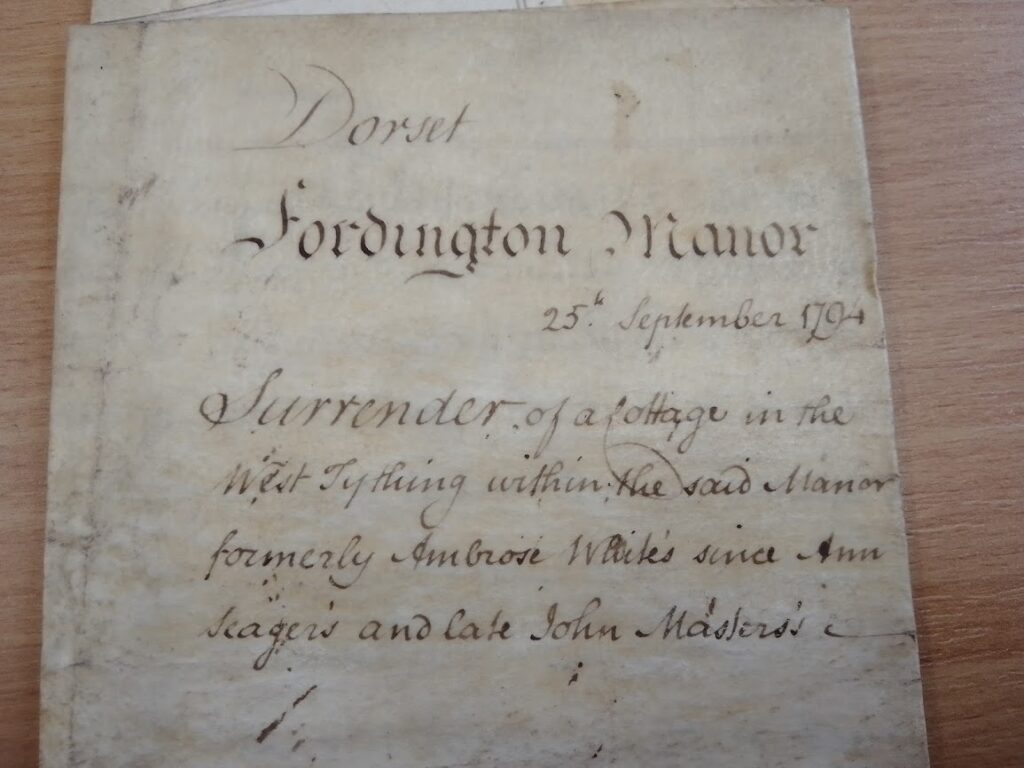 Dorset
Fordington Manor
25th. September 1794
Surrender of a Cottage in the
West Tything within the said Manor
formerly Ambrose White's since Ann
Seager's and late John Masters's